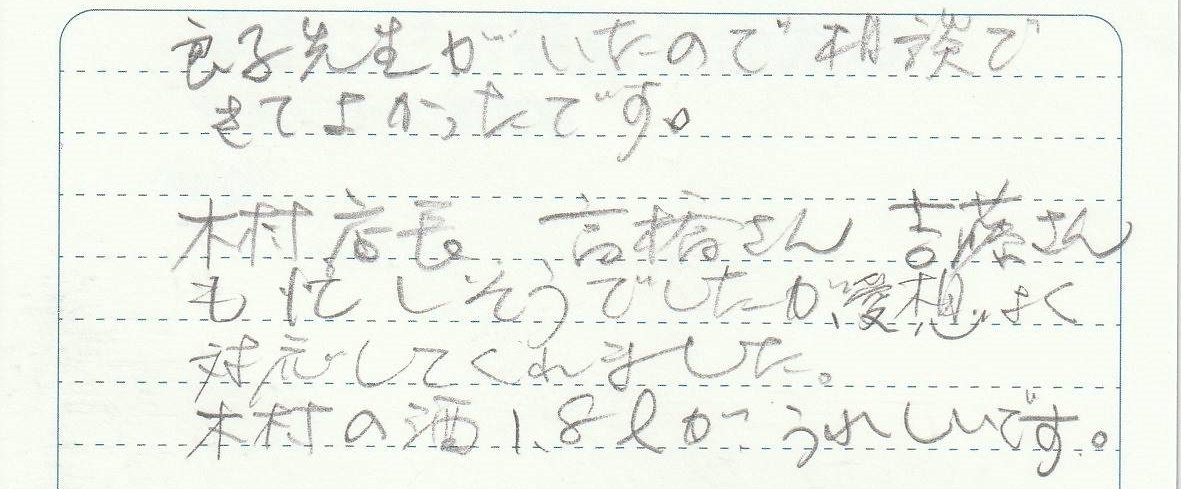 良子先生がいたので相談で
きてよかったです。
木村店長、高橋さん 吉藤さん
も忙しそうでしたが、愛想よく
対応してくれました。
木村の酒1.8lが、うれしいです。